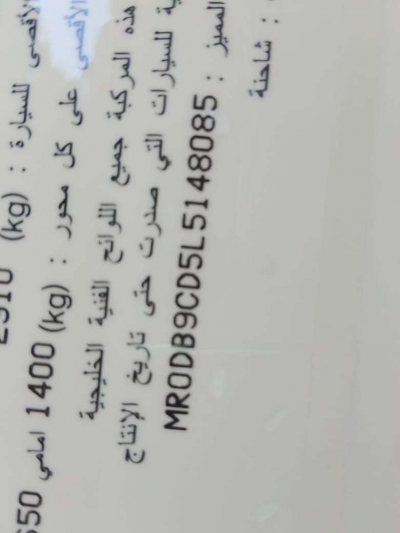 الأقصى للسيارة : (kg)
الأقصى على كل محور : (kg) 1400 امامي
هذه المركبة جميع اللوائح الفنية الخليجية
للسيارات التي صدرت حتى تاريخ الإنتاج
المميز : MR0DB9CD5L5148085
: شاحنة